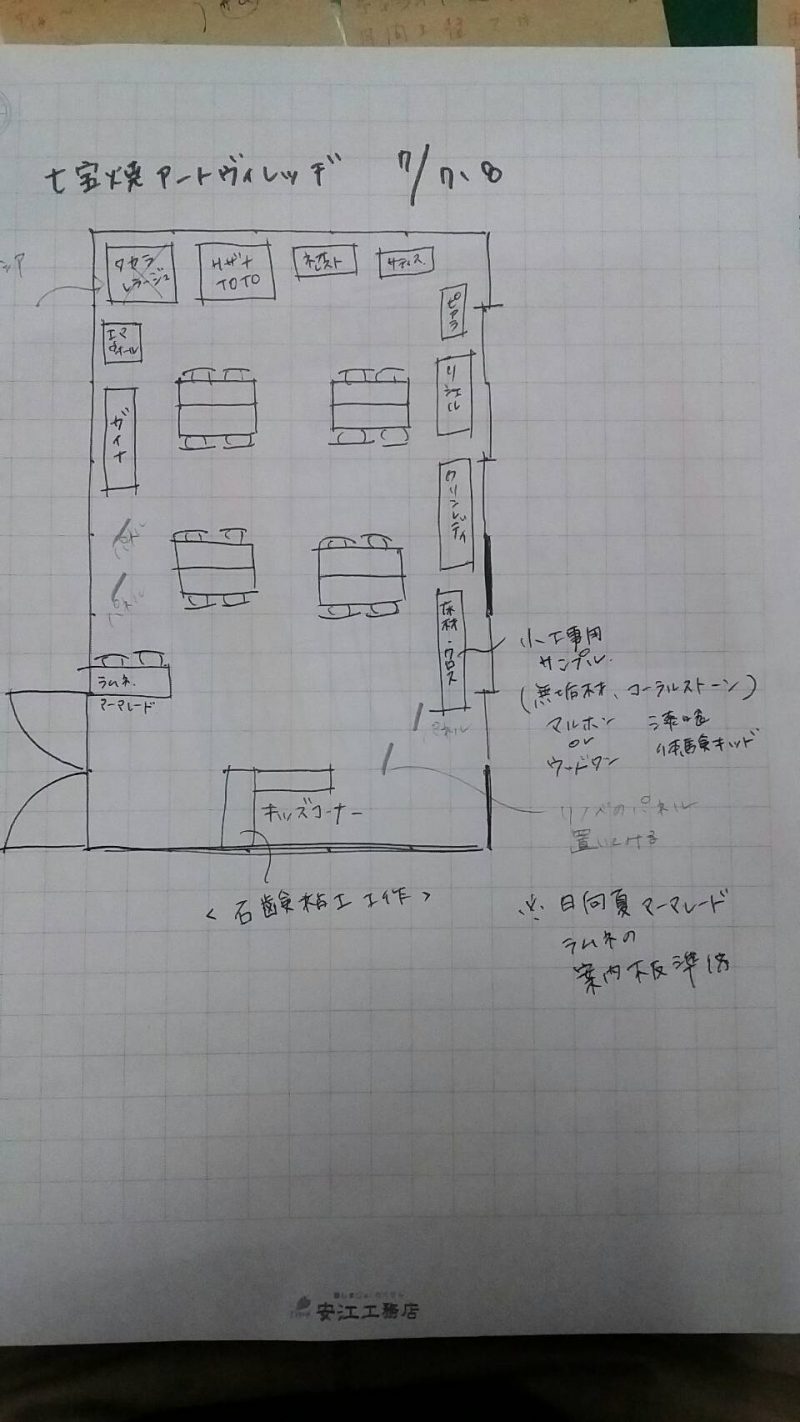 七宝焼アートヴィレッヂ 7/7、8
タカラ
レラージュ
サザナ
TOTO
ネクスト
サティス
ピアラ
エマ
ウォール
リシェル
ガイナ
クリンレディ
床材・クロス
パネル
パネル
ラムネ.
マーマレード
パネル
キッズコーナー
小工事用
サンプル.
(無垢材、コーラルストーン)
マルホン 漆喰
or 体験キッド
ウッドワン
リノベのパネル
置いとける
<石鹸粘土工作>
※ 日向夏マーマレード
ラムネの
案内板準備
安江工務店